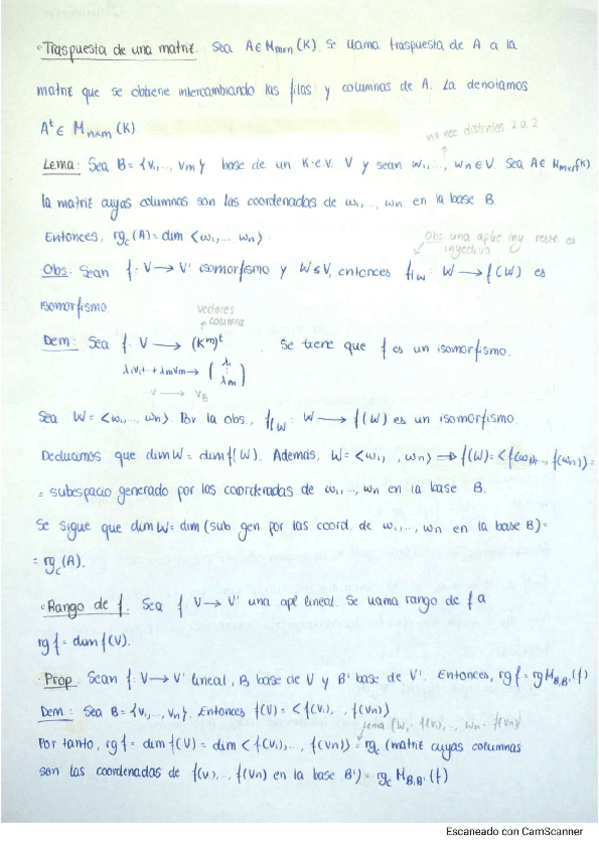 • Traspuesta de una matriz. Sea A ∈ M_mxn (K). Se llama traspuesta de A a la
matriz que se obtiene intercambiando las filas y columnas de A. La denotamos
A^t ∈ M_nxm (K).
no nec. distintos 2 a 2
Lema: Sea B = {v₁,..., vm} base de un K-e.v. V y sean w₁,..., wn ∈ V. Sea A ∈ M_mxn(K)
la matriz cuyas columnas son las coordenadas de w₁,..., wn en la base B.
Entonces, rg_c (A) = dim <w₁,... wn>.
Obs: una aplic iny restr. es
inyectiva
Obs: Sean f: V → V' isomorfismo y W ≤ V, entonces f|_W : W → f(W) es
isomorfismo.
vectores
columna
Dem: Sea f: V → (K^m)^t . Se tiene que f es un isomorfismo.
λ₁v₁+...+λmvm → (λ₁ ⋮ λm)
v → v_B
Sea W = <w₁,..., wn>. Por la obs., f|_W : W → f(W) es un isomorfismo.
Deducimos que dim W = dim f(W). Además, W = <w₁, , wn> ⇒ f(W) = <f(w₁),..., f(wn)> =
= subespacio generado por las coordenadas de w₁,..., wn en la base B.
Se sigue que dim W = dim (sub gen por las coord. de w₁,..., wn en la base B) =
= rg_c (A).
• Rango de f. Sea f: V → V' una apl lineal. Se llama rango de f a
rg f = dim f(V).
· Prop. Sean f: V → V' lineal, B base de V y B' base de V'. Entonces, rg f = rg M_B,B' (f)
Dem: Sea B = {v₁,..., vn}. Entonces f(V) = <f(v₁),..., f(vn)>
Lema (w₁ = f(v₁),..., wn = f(vn))
Por tanto, rg f = dim f(V) = dim <f(v₁),..., f(vn)> = rg_c (matriz cuyas columnas
son las coordenadas de f(v₁),..., f(vn) en la base B') = rg_c M_B,B' (f)
Escaneado con CamScanner